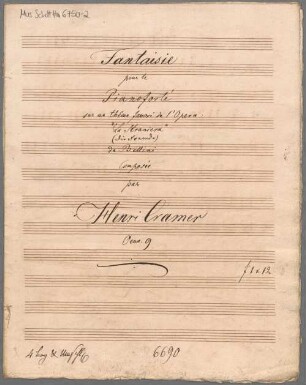 Mus Schott Ha 6750-2
Fantaisie
pour le
Pianoforté
sur un thême favori de l'Opera
"La Straniera"
(die Fremde)
de Bellini
Composée
par
Henri Cramer
Oeuv. 9
f 1 x 12
6690